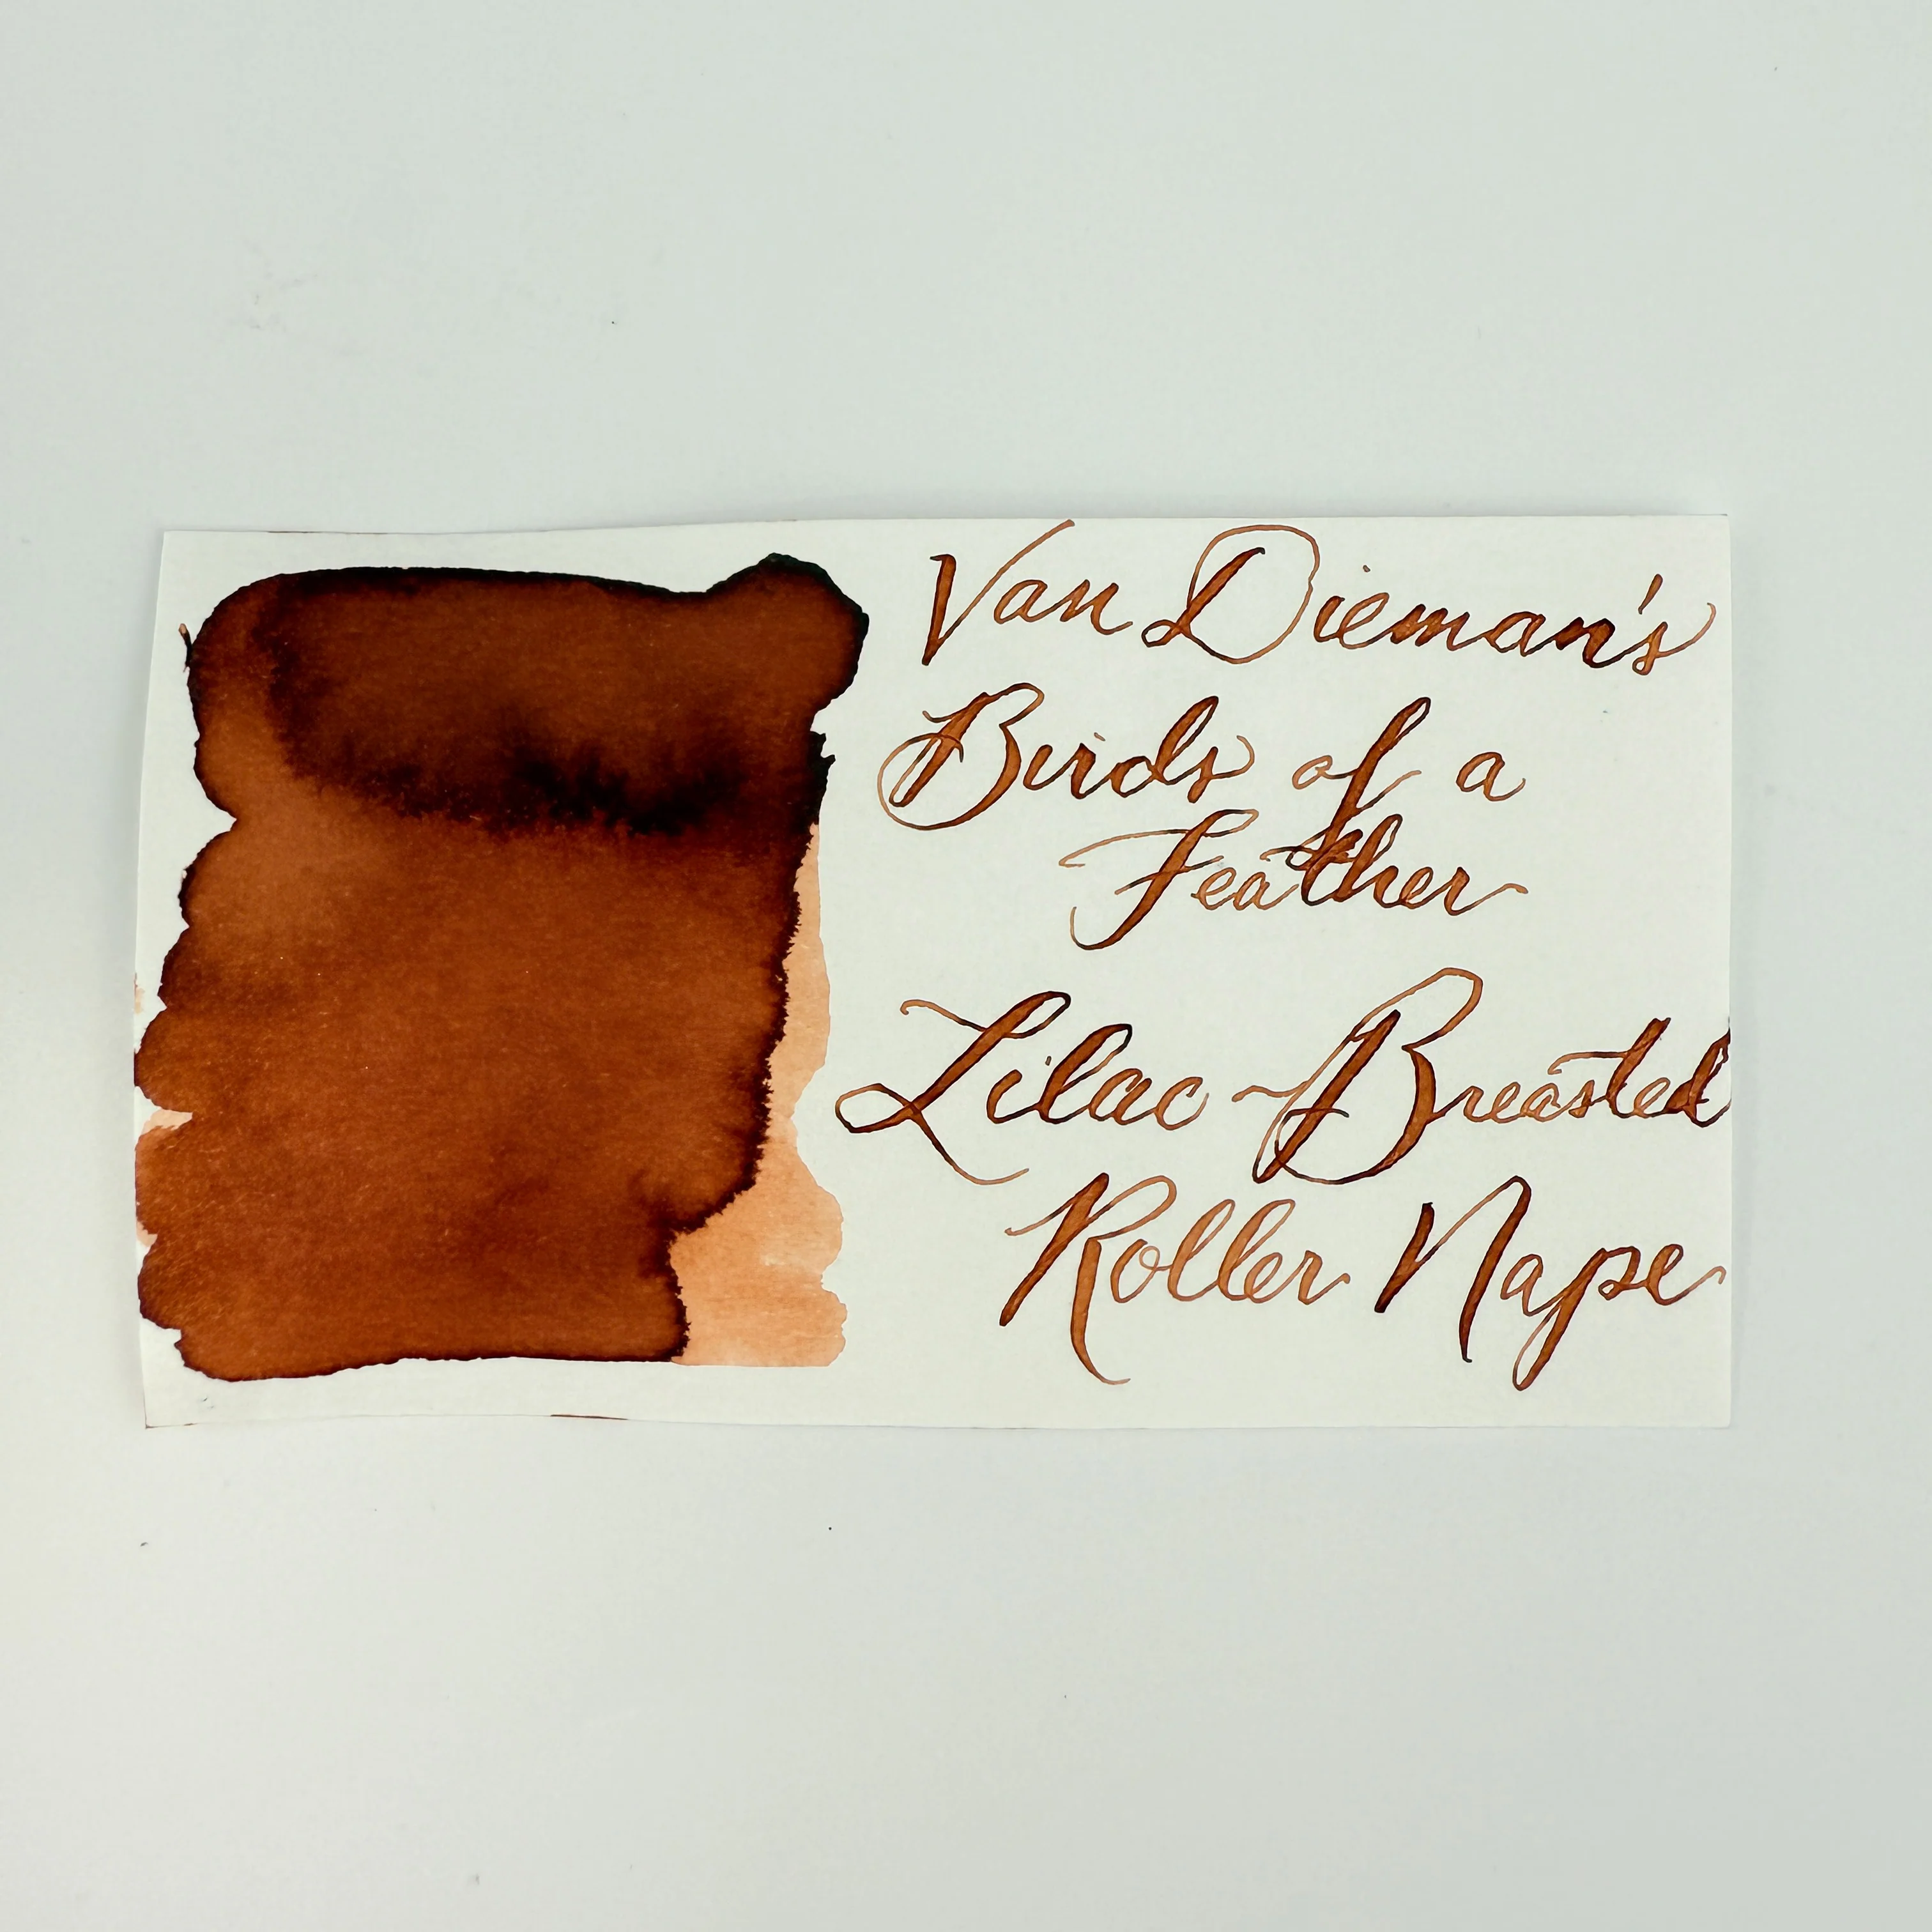 Van Dieman's
Birds of a
Feather
Lilac-Breasted
Roller Nape